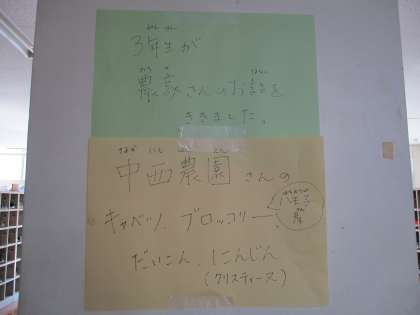 3年生が
農家さんのお話を
ききました。
なか にし のう えん
中西農園さんの
キャベツ、ブロッコリー
だいこん、にんじん
(クリスティーヌ)